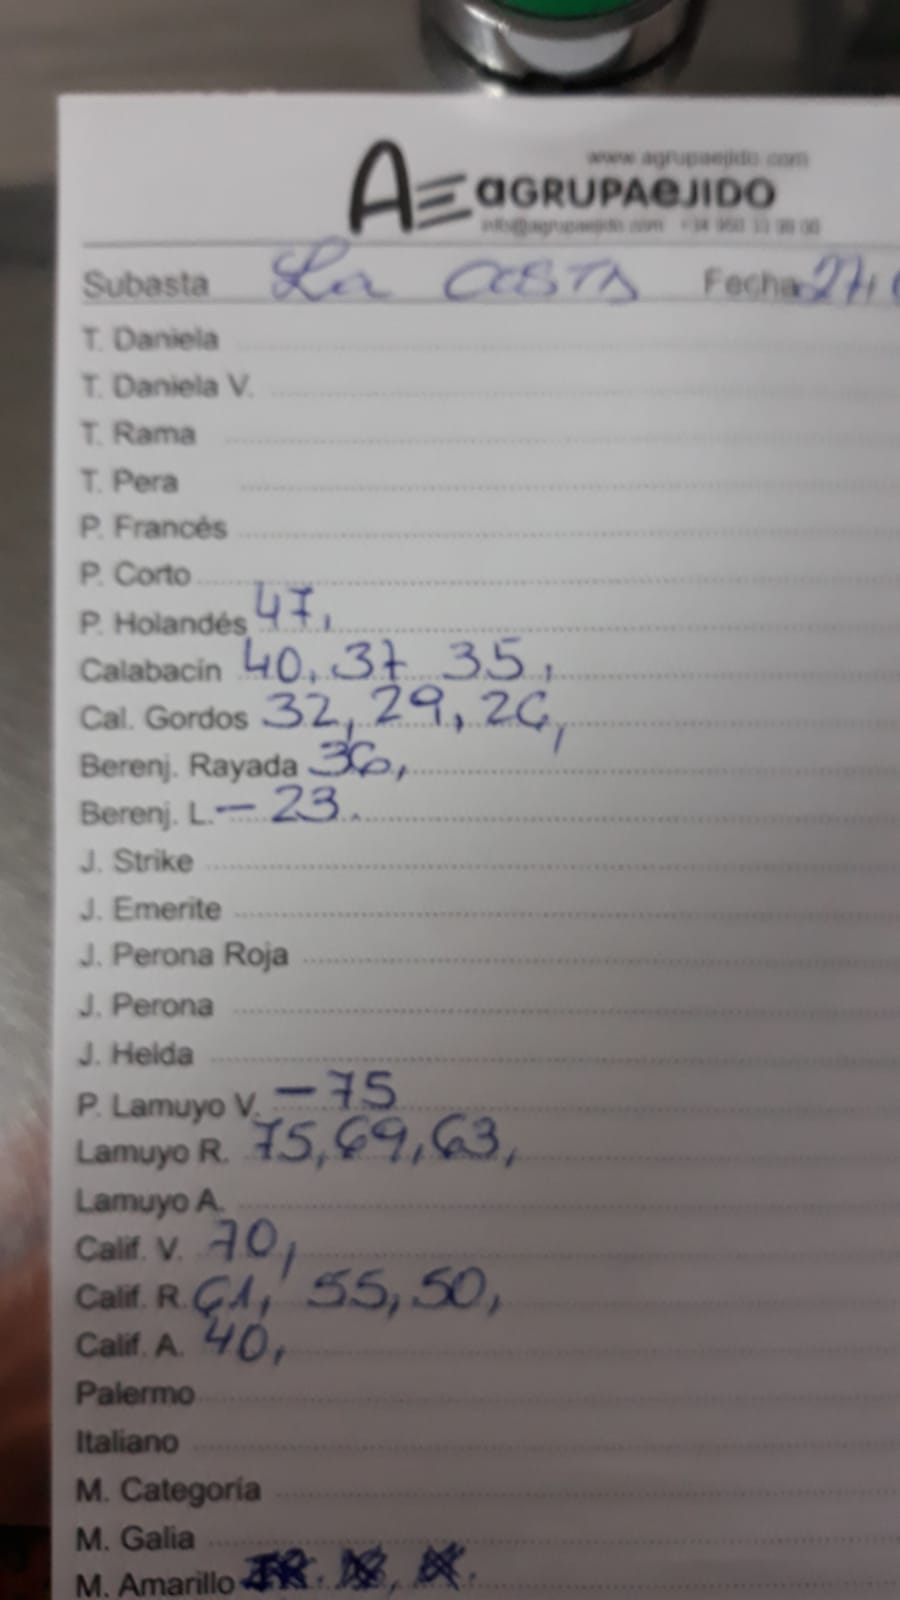 www.agrupaejido.com
AE aGRUPAeJIDO
info@agrupaejido.com +34 950 33 99 00
Subasta La COSTA Fecha 27,
T. Daniela
T. Daniela V.
T. Rama
T. Pera
P. Francés
P. Corto
P. Holandés 47,
Calabacín 40, 37 35,
Cal. Gordos 32, 29, 26,
Berenj. Rayada 36,
Berenj. L. - 23.
J. Strike
J. Emerite
J. Perona Roja
J. Perona
J. Helda
P. Lamuyo V. - 75
Lamuyo R. 75, 69, 63,
Lamuyo A.
Calif. V. 70,
Calif. R. 61, 55, 50,
Calif. A. 40,
Palermo
Italiano
M. Categoría
M. Galia
M. Amarillo